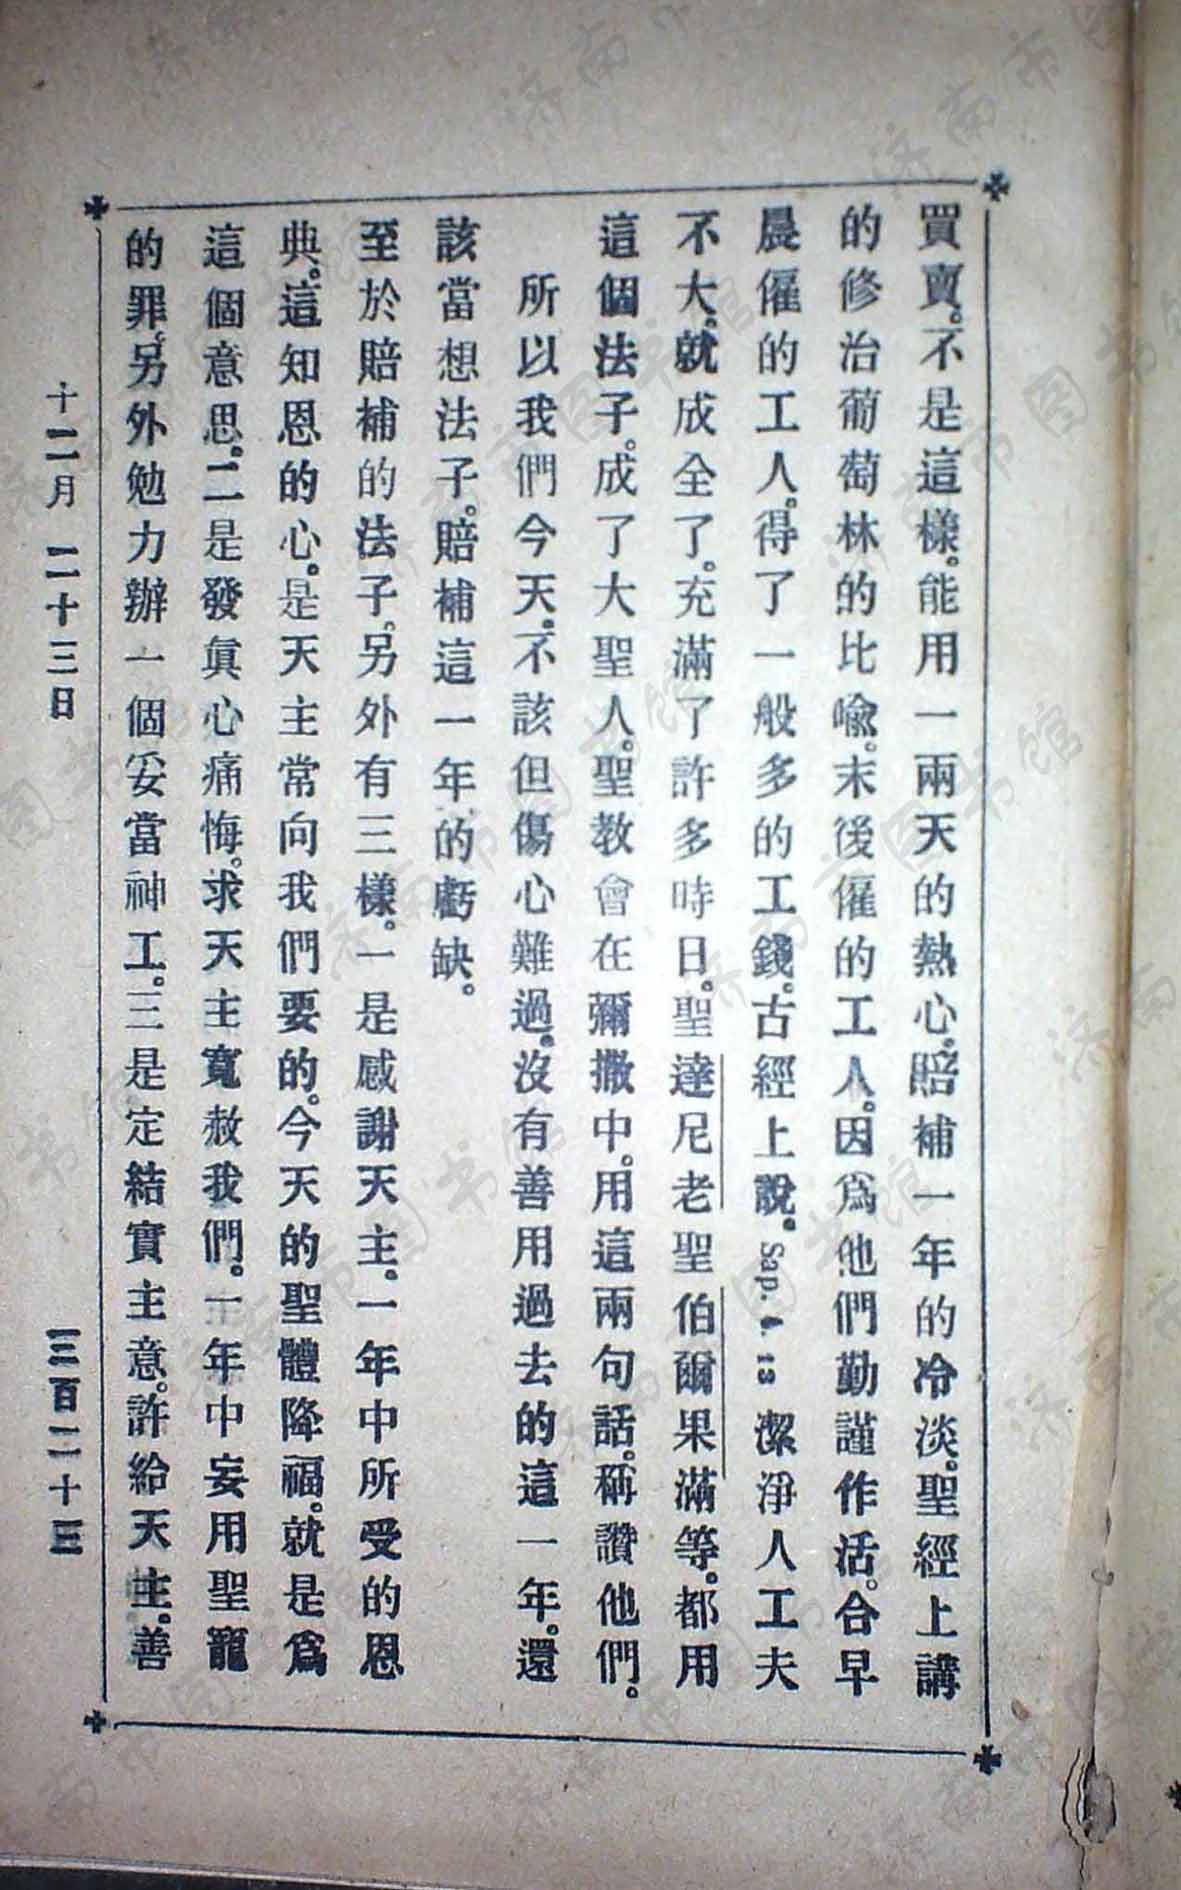 買賣。不是這樣。能用一兩天的熱心。賠補一年的冷淡。聖經上講
的修治葡萄林的比喩。末後僱的工人。因爲他們勤謹作活。合早
晨僱的工人。得了一般多的工錢。古經上說。Sap. 4. 13 潔淨人工夫
不大。就成全了。充滿了許多時日。聖達尼老聖伯爾果滿等。都用
這個法子。成了大聖人。聖教會在彌撒中。用這兩句話。稱讚他們。
所以我們今天。不該但傷心難過。沒有善用過去的這一年。還
該當想法子。賠補這一年的虧缺。
至於賠補的法子。另外有三樣。一是感謝天主。一年中所受的恩
典。這知恩的心。是天主常向我們要的。今天的聖體降福。就是爲
這個意思。二是發眞心痛悔。求天主寬赦我們。一年中妄用聖寵
的罪。另外勉力辦一個妥當神工。三是定結實主意。許給天主。善
十二月 二十三日 三百二十三
济南市图书馆